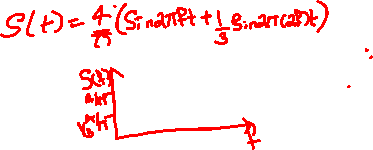 S(t) = 4/π (Sin2πft + 1/3 Sin2π(2f)t)
S(t)
4/π
f